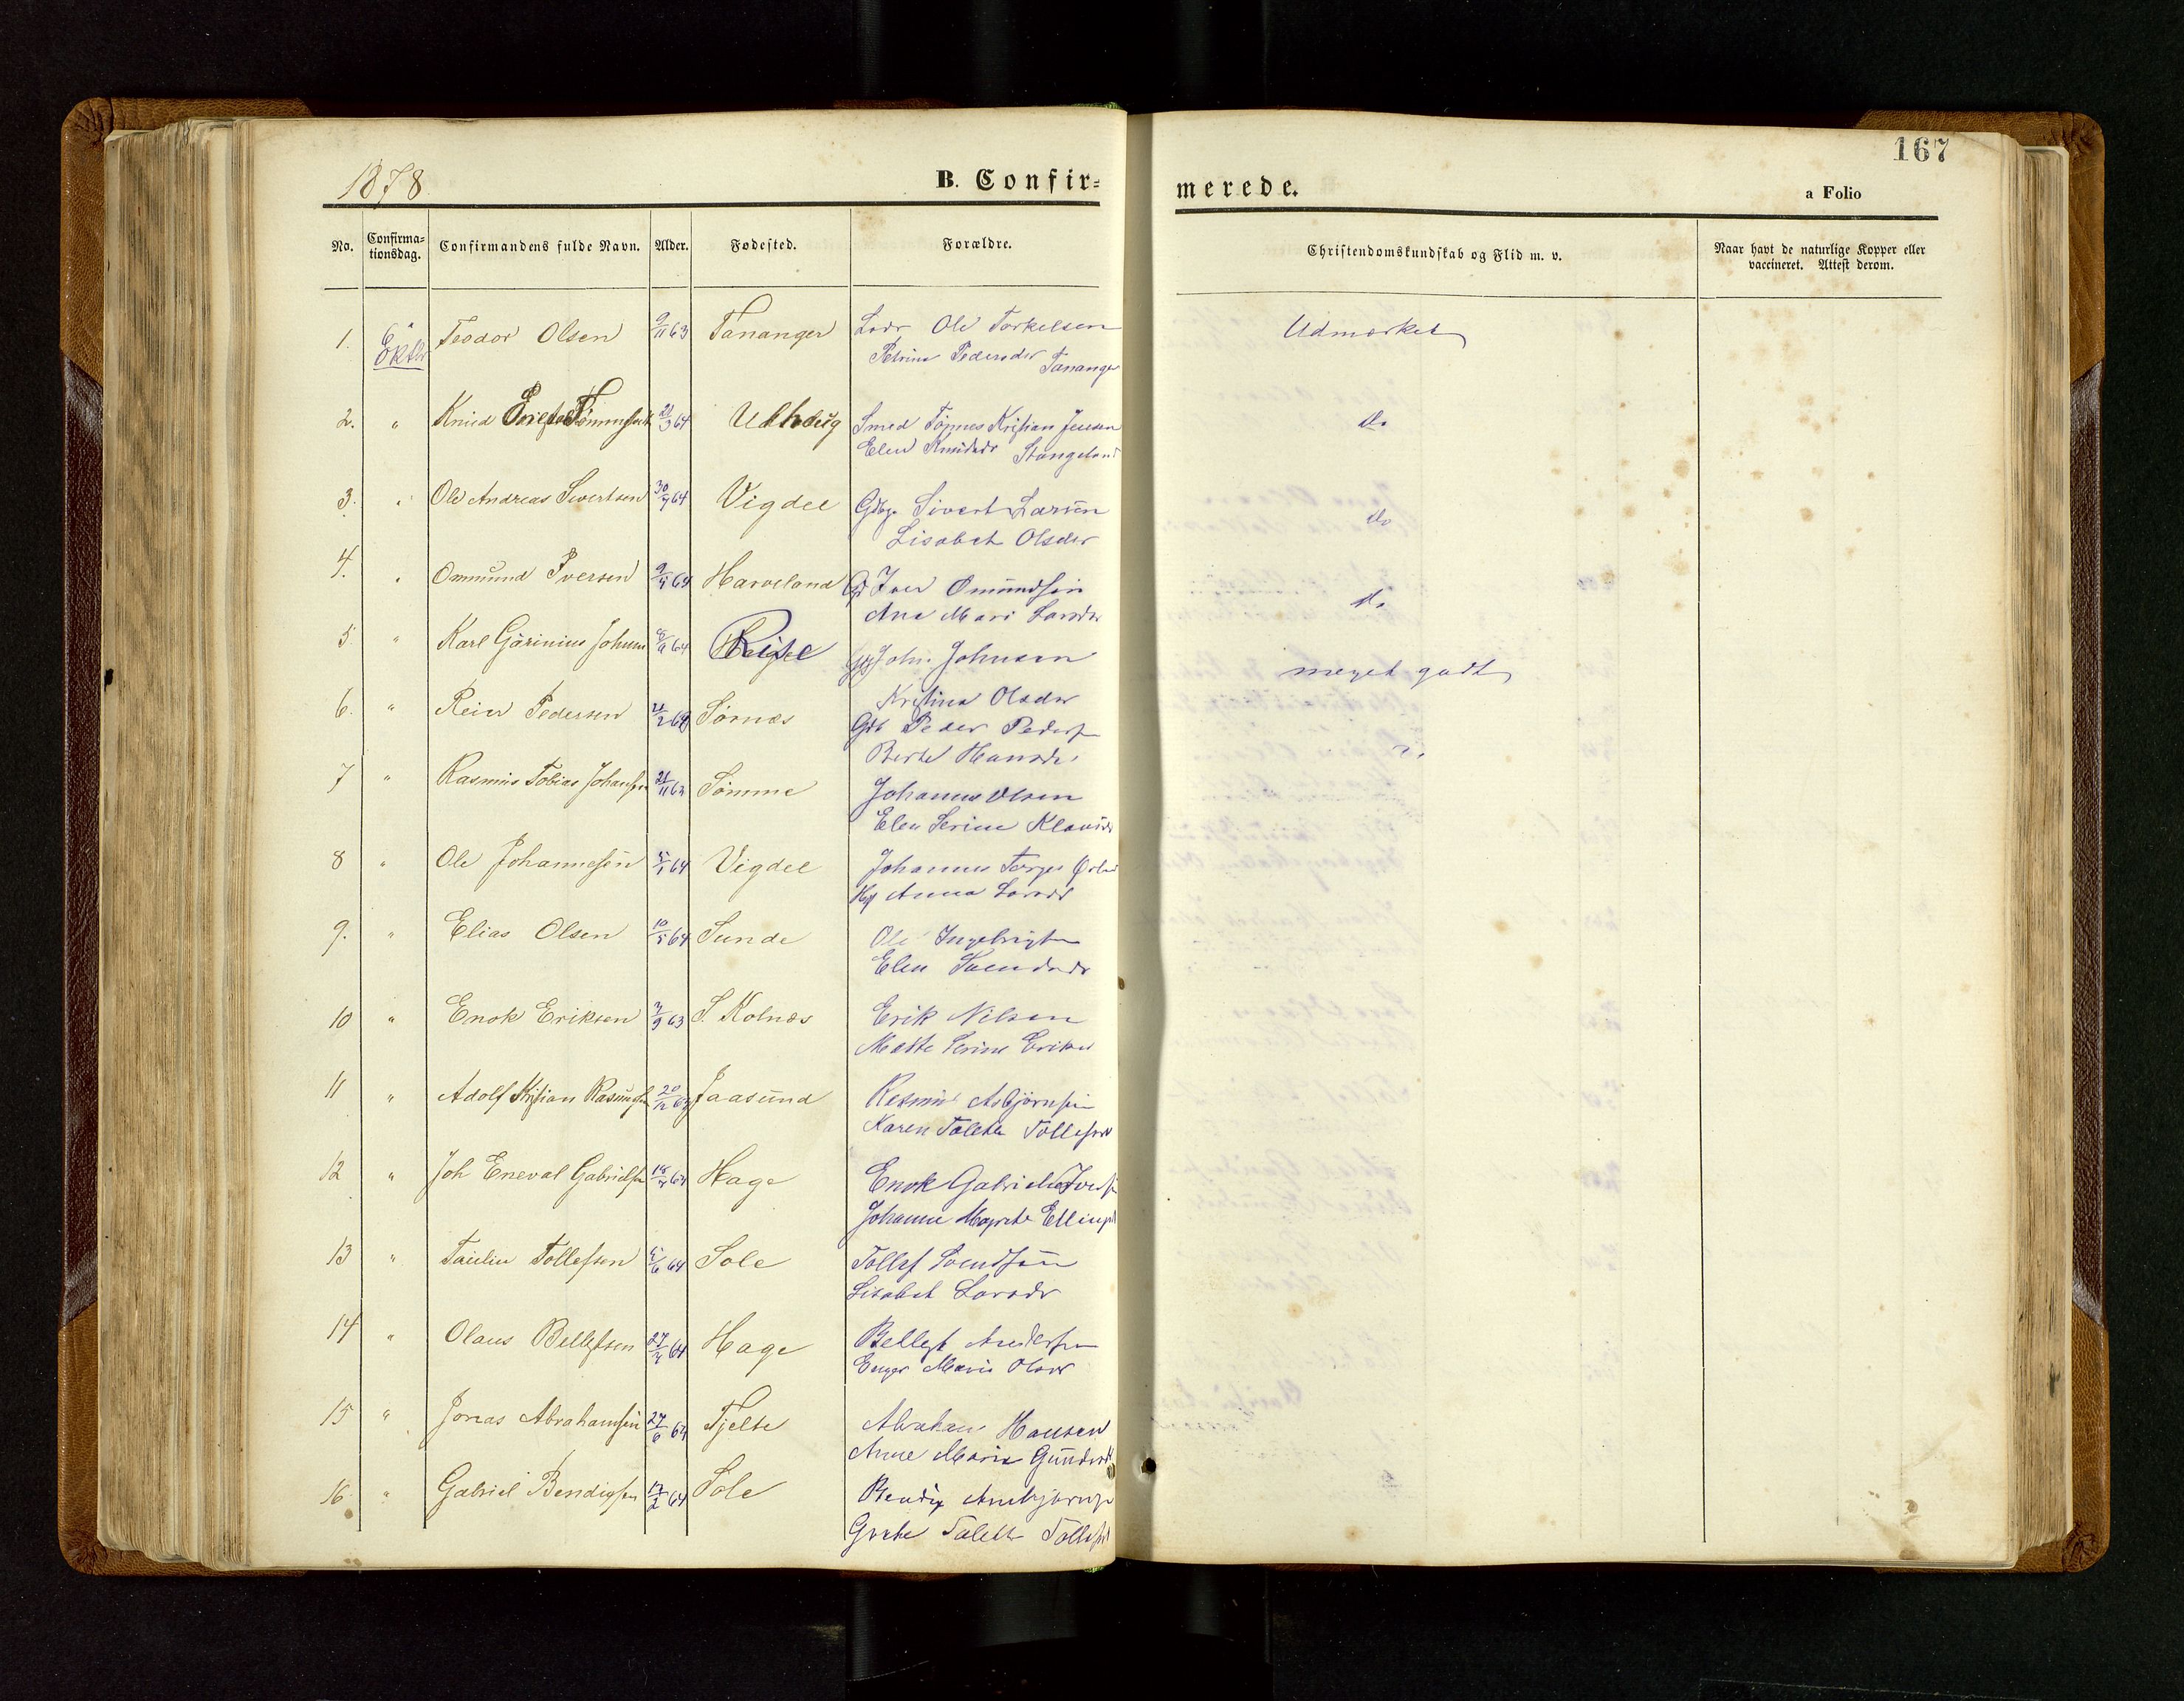 1878
B. Confir=
merede.
167
a Folio
No.
Confirma=
tionsdag.
Confirmandens fulde Navn.
Alder.
Fødested.
Forældre.
Christendomskundskab og Flid m. v.
Naar havt de naturlige Kopper eller
vaccineret. Attest derom.
1. 6 Oktbr Teodor Olsen 9/11 63 Tananger Lods Ole Torkelsen Udmærket
Petrine Pedersdr Tananger
2. " Knud 21/3 64 Smed Tønnes Kristian Jensen do
Elen Knudsdr Stangeland
3. " Ole Andreas Sivertsen 30/7 64 Vigdel Gdbr Sivert Larsen do
Lisabet Olsdr
4. " Ommund Iversen 9/4 64 Harveland Iver Omundsen do
Ane Mari Larsdr
5. " Karl Gärinius Johnsen 64 Risa John Johnsen meget godt
Kristine Olsdr
6. " Reier Pedersen Sörnæs Gdb Peder Pedersen
Berte Hansdr
7 " Rasmus Tobias Johansen 21/11 63 Sömme Johannes Olsen
Elen Serine Klausdr
8 " Ole Johannesen 5/1 64 Vigdel Johannes Terges
Anna Larsdr
9. " Elias Olsen 10/5 64 Sunde Ole Ingebrigtsen
Elen Svendsdr
10 " Enok Eriksen 3/9 63 S. Kolnæs Erik Nilsen
Mette Serine Eriksd
11 " Adolf Kristian Rasmussen 20/12 63 Jaasund Rasmus Asbjørnsen
Karen Talette Tollefsdr
12 " Joh Eneval Gabrielsen 18/4 64 Hage Enok Gabriel Iversen
Johanne Magrete
13 " Taulin Tollefsen 64 Sole Tollef Svendsen
Lisabet Larsdr
14 " Olaus Bellefsen 27/4 64 Hage Bellest Andersen
Enger Marie Olsdr
15 " Jonas Abrahamsen 27/6 64 Tjelte Abraham Hansen
Anne Marie
16 " Gabriel Bendixsen 17/2 64 Sole Bendix
Grete Talette Tollefsd